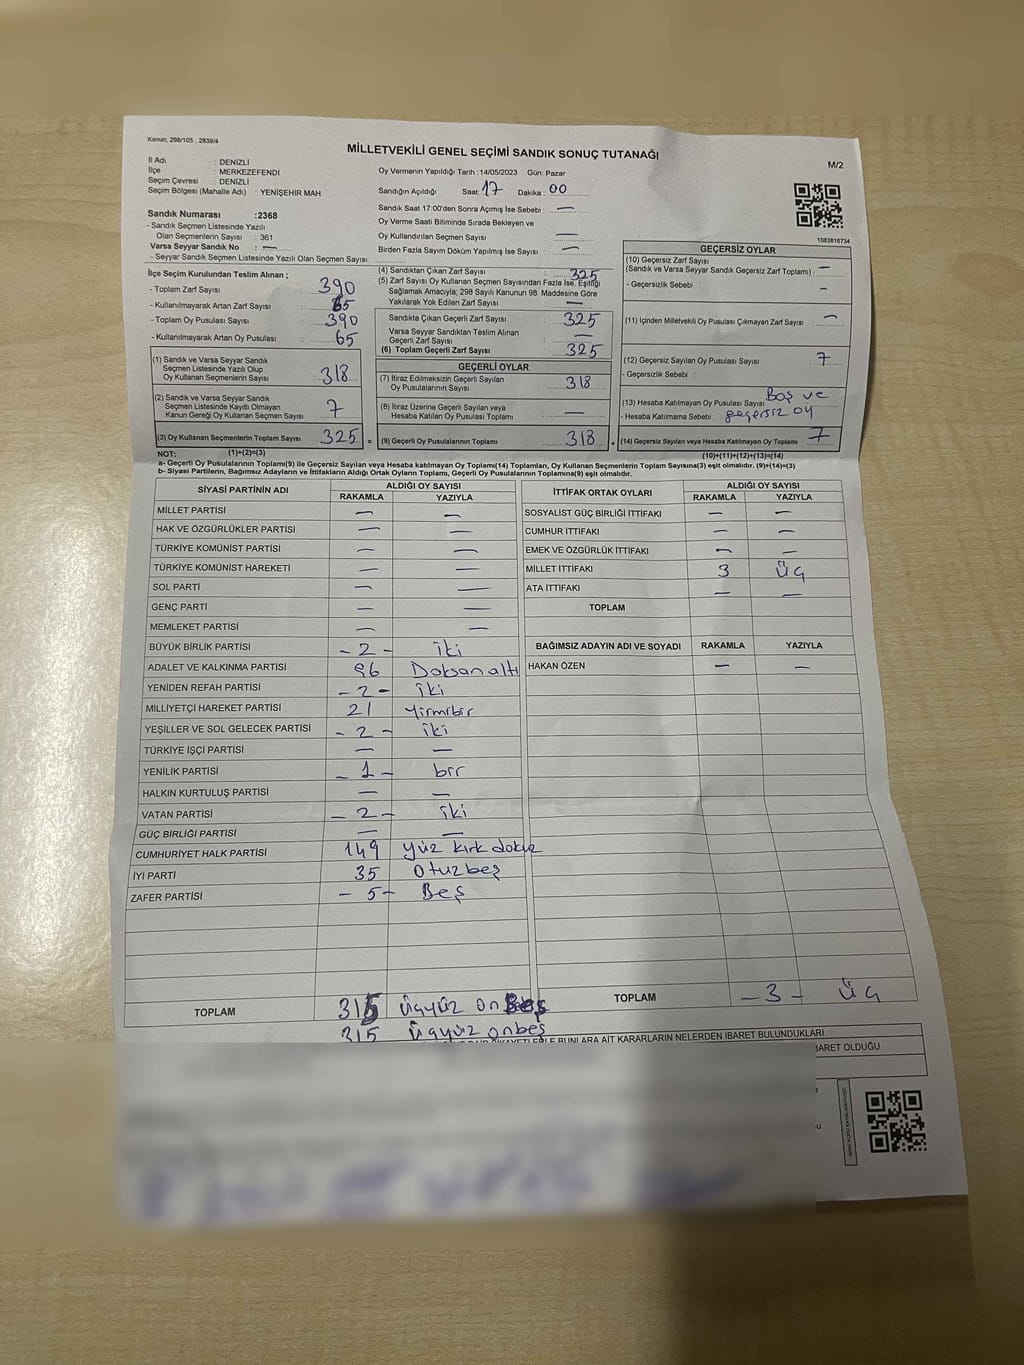 Kanun; 298/105 , 2839/4
MİLLETVEKİLİ GENEL SEÇİMİ SANDIK SONUÇ TUTANAĞI
M/2
İl Adı : DENİZLİ
İlçe : MERKEZEFENDİ
Seçim Çevresi : DENİZLİ
Seçim Bölgesi (Mahalle Adı) : YENİŞEHİR MAH.
Oy Vermenin Yapıldığı Tarih : 14/05/2023 Gün: Pazar
Sandığın Açıldığı Saat: 17 Dakika: 00
Sandık Saat 17:00'den Sonra Açımış İse Sebebi : —
Oy Verme Saati Bitiminde Sırada Bekleyen ve
Oy Kullandırılan Seçmen Sayısı : —
Birden Fazla Sayım Döküm Yapılmış İse Sayısı : —
1083816734
Sandık Numarası : 2368
- Sandık Seçmen Listesinde Yazılı
Olan Seçmenlerin Sayısı : 361
Varsa Seyyar Sandık No : —
- Seyyar Sandık Seçmen Listesinde Yazılı Olan Seçmen Sayısı:
İlçe Seçim Kurulundan Teslim Alınan ;
- Toplam Zarf Sayısı : 390
- Kullanılmayarak Artan Zarf Sayısı : 65
- Toplam Oy Pusulası Sayısı : 390
- Kullanılmayarak Artan Oy Pusulası : 65
(1) Sandık ve Varsa Seyyar Sandık
Seçmen Listesinde Yazılı Olup
Oy Kullanan Seçmenlerin Sayısı : 318
(2) Sandık ve Varsa Seyyar Sandık
Seçmen Listesinde Kayıtlı Olmayan
Kanun Gereği Oy Kullanan Seçmen Sayısı : 7
(3) Oy Kullanan Seçmenlerin Toplam Sayısı : 325 =
(1)+(2)=(3)
(4) Sandıktan Çıkan Zarf Sayısı : 325
(5) Zarf Sayısı Oy Kullanan Seçmen Sayısından Fazla İse, Eşitliği
Sağlamak Amacıyla; 298 Sayılı Kanunun 98. Maddesine Göre
Yakılarak Yok Edilen Zarf Sayısı : —
Sandıkta Çıkan Geçerli Zarf Sayısı : 325
Varsa Seyyar Sandıktan Teslim Alınan
Geçerli Zarf Sayısı : —
(6) Toplam Geçerli Zarf Sayısı : 325
GEÇERLİ OYLAR
(7) İtiraz Edilmeksizin Geçerli Sayılan
Oy Pusulalarının Sayısı : 318
(8) İtiraz Üzerine Geçerli Sayılan veya
Hesaba Katılan Oy Pusulası Toplamı : —
(9) Geçerli Oy Pusulalarının Toplamı : 318 +
GEÇERSİZ OYLAR
(10) Geçersiz Zarf Sayısı
(Sandık ve Varsa Seyyar Sandık Geçersiz Zarf Toplamı) : —
- Geçersizlik Sebebi : —
(11) İçinden Milletvekili Oy Pusulası Çıkmayan Zarf Sayısı : —
(12) Geçersiz Sayılan Oy Pusulası Sayısı : 7
- Geçersizlik Sebebi :
(13) Hesaba Katılmayan Oy Pusulası Sayısı : Boş ve
- Hesaba Katılmama Sebebi : geçersiz oy
(14) Geçersiz Sayılan veya Hesaba Katılmayan Oy Toplamı : 7
(10)+(11)+(12)+(13)=(14)
NOT:
a- Geçerli Oy Pusulalarının Toplamı(9) ile Geçersiz Sayılan veya Hesaba katılmayan Oy Toplamı(14) Toplamları, Oy Kullanan Seçmenlerin Toplam Sayısına(3) eşit olmalıdır. (9)+(14)=(3)
b- Siyasi Partilerin, Bağımsız Adayların ve İttifakların Aldığı Ortak Oyların Toplamı, Geçerli Oy Pusulalarının Toplamına(9) eşit olmalıdır.
SİYASİ PARTİNİN ADI ALDIĞI OY SAYISI
RAKAMLA YAZIYLA
MİLLET PARTİSİ — —
HAK VE ÖZGÜRLÜKLER PARTİSİ — —
TÜRKİYE KOMÜNİST PARTİSİ — —
TÜRKİYE KOMÜNİST HAREKETİ — —
SOL PARTİ — —
GENÇ PARTİ — —
MEMLEKET PARTİSİ — —
BÜYÜK BİRLİK PARTİSİ - 2 - iki
ADALET VE KALKINMA PARTİSİ 96 Doksan altı
YENİDEN REFAH PARTİSİ - 2 - iki
MİLLİYETÇİ HAREKET PARTİSİ 21 Yirmibir
YEŞİLLER VE SOL GELECEK PARTİSİ - 2 - iki
TÜRKİYE İŞÇİ PARTİSİ — —
YENİLİK PARTİSİ - 1 - bir
HALKIN KURTULUŞ PARTİSİ — —
VATAN PARTİSİ - 2 - iki
GÜÇ BİRLİĞİ PARTİSİ — —
CUMHURİYET HALK PARTİSİ 149 yüz kırk dokuz
İYİ PARTİ 35 Otuzbeş
ZAFER PARTİSİ - 5 - Beş
TOPLAM 315 üçyüz onbeş
315 üçyüz onbeş
İTTİFAK ORTAK OYLARI ALDIĞI OY SAYISI
RAKAMLA YAZIYLA
SOSYALİST GÜÇ BİRLİĞİ İTTİFAKI — —
CUMHUR İTTİFAKI — —
EMEK VE ÖZGÜRLÜK İTTİFAKI — —
MİLLET İTTİFAKI 3 üç
ATA İTTİFAKI — —
TOPLAM
BAĞIMSIZ ADAYIN ADI VE SOYADI RAKAMLA YAZIYLA
HAKAN ÖZEN — —
TOPLAM - 3 - üç
BUNLARA AİT KARARLARIN NELERDEN İBARET BULUNDUKLARI
BARET OLDUĞU